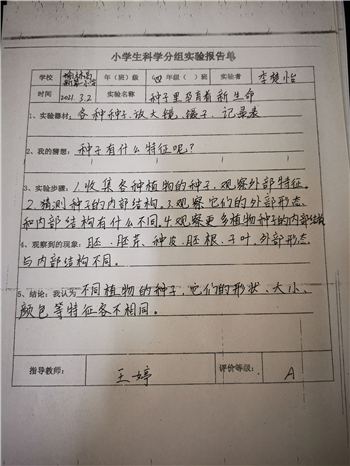 小学生科学分组实验报告单
学校 年（班）级 四年级（ ）班 实验者 李梦怡
时间 2021.3.2 实验名称 种子里孕育着新生命
1、实验器材：各种种子、放大镜、镊子、记录表
2、我的猜想：种子有什么特征呢？
3、实验步骤：1.收集各种植物的种子，观察外部特征。
2.猜测种子的内部结构。3.观察它们的外部形态
和内部结构有什么不同。4.观察更多植物种子的内部结构
4、观察到的现象：胚、胚芽、种皮、胚根、子叶，外部形态
与内部结构不同。
5、结论：我认为不同植物的种子，它们的形状、大小、
颜色等特征各不相同。
指导教师： 王婷 评价等级： A